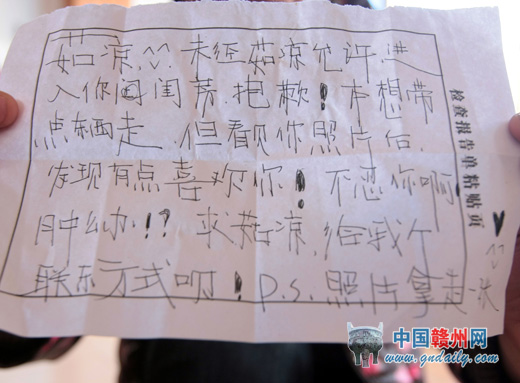 茹凉^^ 未经茹凉允许进
入你闺房.抱歉!本想带
点东西走.但看见你照片后.
发现有点喜欢你!不恋你啊!
肿么办!?求茹凉.给我个
联系方式呗!P.S.照片拿走一张
♥
^^
检查报告单粘贴页
中国赣州网
www.gndaily.com